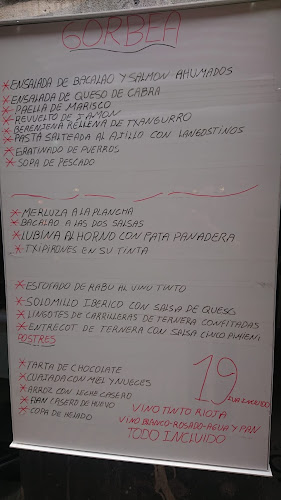 GORBEA
* ENSALADA DE BACALAO Y SALMON AHUMADOS
* ENSALADA DE QUESO DE CABRA
* PAELLA DE MARISCO
* REVUELTO DE JAMON
* BERENJENA RELLENA DE TXANGURRO
* PASTA SALTEADA AL AJILLO CON LANGOSTINOS
* GRATINADO DE PUERROS
* SOPA DE PESCADO
* MERLUZA A LA PLANCHA
* BACALAO A LAS DOS SALSAS
* LUBINA AL HORNO CON PATA PANADERA
* TXIPIRONES EN SU TINTA
* ESTOFADO DE RABU AL VINU TINTO
* SOLOMILLO IBERICO CON SALSA DE QUESO
* LINGOTES DE CARRILLERAS DE TERNERA CONFITADAS
* ENTRECOT DE TERNERA CON SALSA CINCO PIMIENTA
POSTRES
* TARTA DE CHOCOLATE
* CUAJADA CON MEL Y NUECES
* ARROZ CON LECHE CASERO
* FLAN CASERO DE HUEVO
* COPA DE HELADO
19
IVA INCLUIDO
VINO TINTO RIOJA
VINO BLANCO-ROSADO-AGUA Y PAN
TODO INCLUIDO